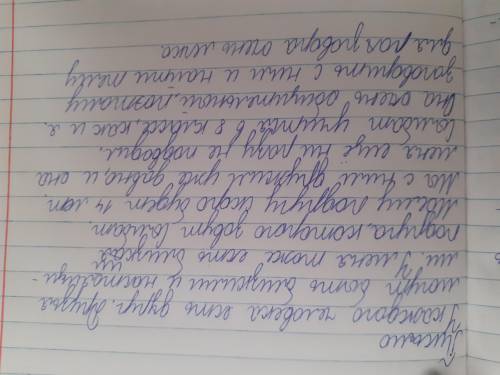 Письмо
У каждого человека есть друг. Друзья
могут быть близкими и настоящи-
ми. У меня тоже есть близкая
подруга, которую зовут
Моему подругу скоро будет 14 лет.
Мы с ней дружим уже давно, и она
меня ещё ни разу не подводил.
учится в 8 классе, как и я.
Она очень общительной, поэтому
заговорить с ним и найти тему
для разговора очень легко.